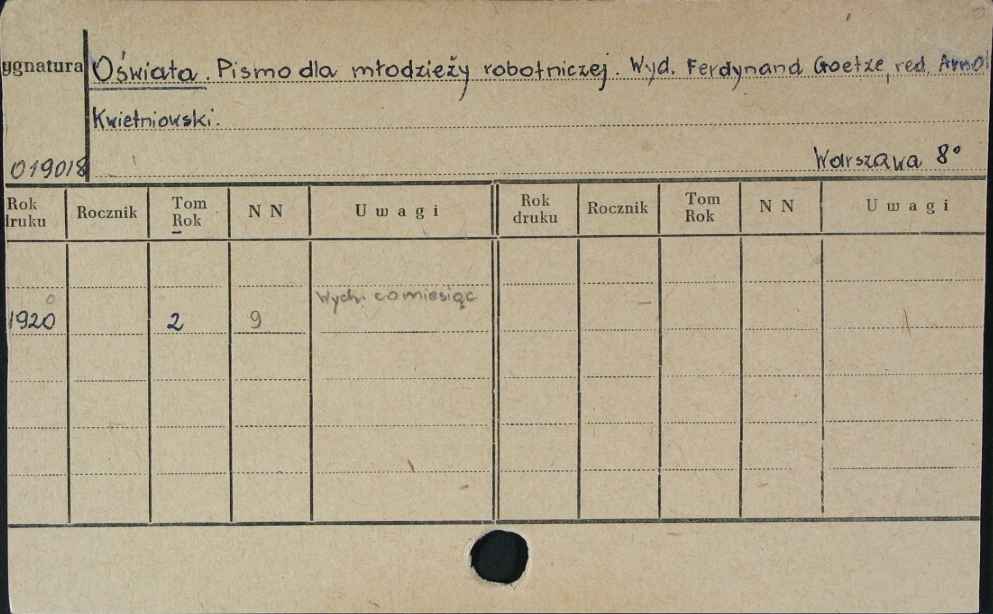 ygnatura Oświata. Pismo dla młodzieży robotniczej. Wyd. Ferdynand Goetze, red. Arnol
Kwietniowski.
019018 Warszawa 8°
Rok druku Rocznik Tom Rok N N Uwagi Rok druku Rocznik Tom Rok N N Uwagi
Wych. co miesiąc
1920 2 9